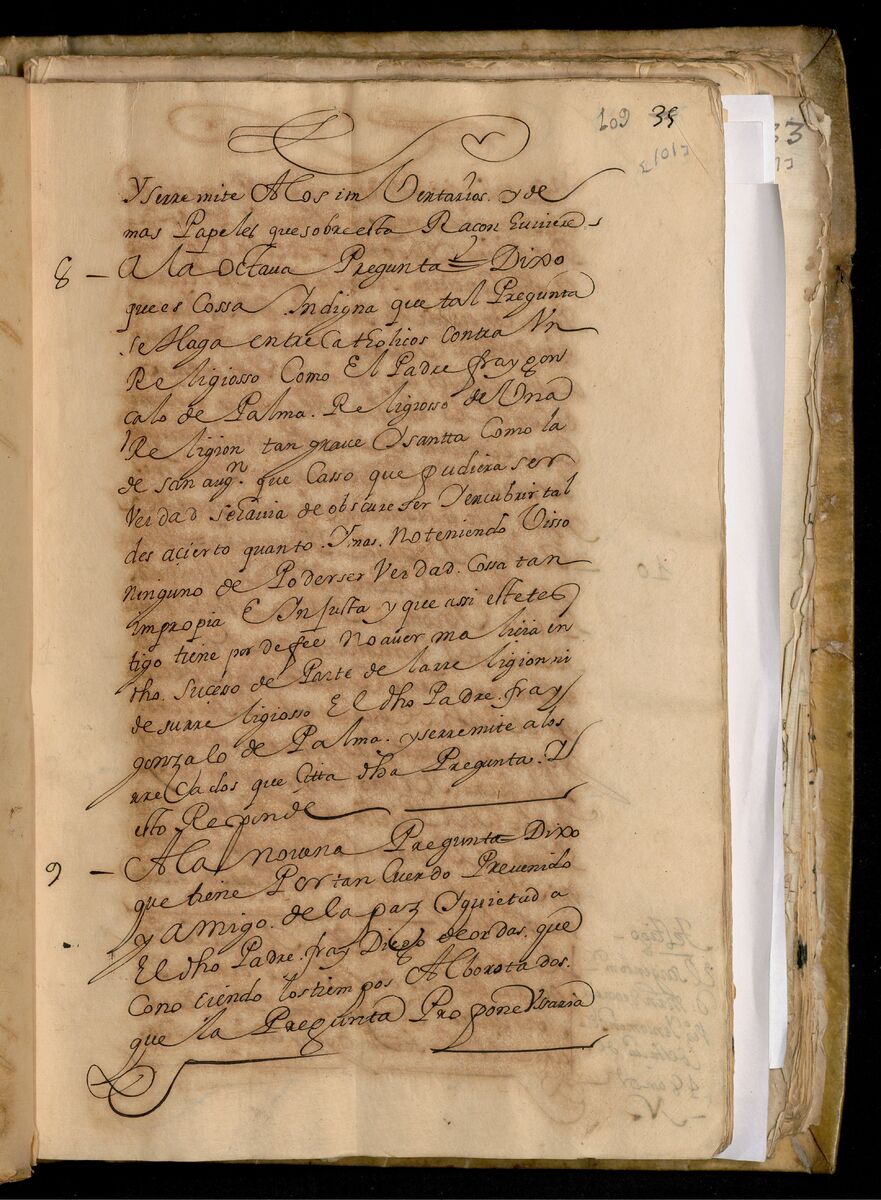 109 35
Y serremite A los imVentarios. y de
mas Papeles que sobre esta Racon Euviere
8 — A la Octaua Pregunta Dixo
que es Cossa Indigna que tal Pregunta
se Haga entre Catholicos contra Vn
Religiosso Como El Padre fray gon
calo de Palma. Religiosso de Vna
Religion tan graue Y santta Como la
de san augn. que Casso que pudiera ser
Verdad se auia de obscureser Y encubrir tal
des acierto quanto. Y mas. No teniendo Visso
ninguno de Poder ser Verdad. Cossa tan
impropia E Injusta y que assi este tes
tigo tiene por de fee No auer malicia en
dho. suceso de Parte de la rreligion ni
de su rreligiosso El dho Padre. fray
gonzalo de Palma. y serremite a los
rrecados que Citta dha Pregunta. Y
esto Responde
9 — A la novena Pregunta Dixo
que tiene Por tan Cuerdo Preuenido
y amigo. de la paz Y quietud a
El dho Padre. fray Diego de ordas. que
Conociendo los tiempos Alborotados.
que la Pregunta Propone Usaria